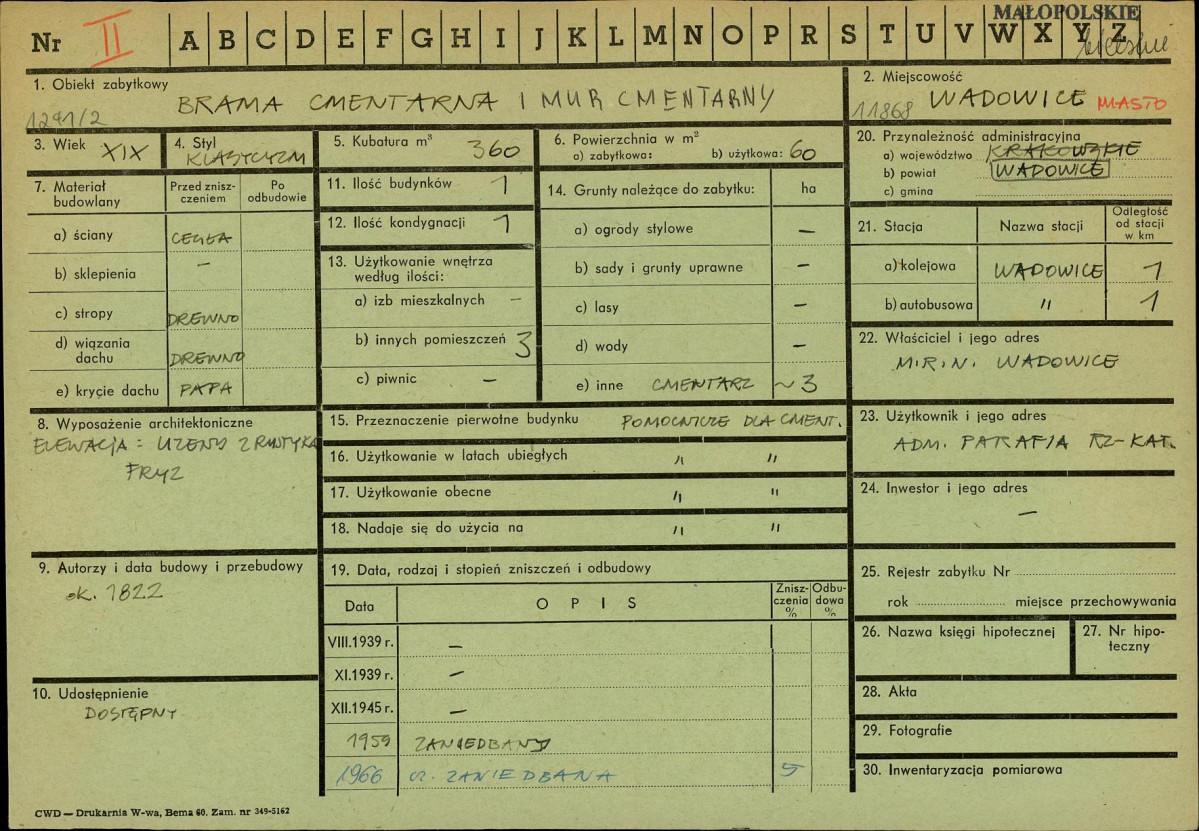 MAŁOPOLSKIE
Nr II A B C D E F G H I J K L M N O P R S T U V W X Y Z
1. Obiekt zabytkowy
BRAMA CMENTARNA I MUR CMENTARNY
1291/2
2. Miejscowość
11868 WADOWICE MIASTO
3. Wiek XIX
4. Styl
KLASYCYZM
5. Kubatura m³ 360
6. Powierzchnia w m²
a) zabytkowa: b) użytkowa: 60
20. Przynależność administracyjna
a) województwo KRAKOWSKIE
b) powiat WADOWICE
c) gmina
7. Materiał budowlany
Przed zniszczeniem
Po odbudowie
a) ściany CEGŁA
b) sklepienia –
c) stropy DREWNO
d) wiązania dachu DREWNO
e) krycie dachu PAPA
11. Ilość budynków 1
12. Ilość kondygnacji 1
13. Użytkowanie wnętrza według ilości:
a) izb mieszkalnych –
b) innych pomieszczeń 3
c) piwnic –
14. Grunty należące do zabytku: ha
a) ogrody stylowe –
b) sady i grunty uprawne –
c) lasy –
d) wody –
e) inne CMENTARZ ~3
21. Stacja Nazwa stacji Odległość od stacji w km
a) kolejowa WADOWICE 1
b) autobusowa " 1
22. Właściciel i jego adres
M.R.N. WADOWICE
8. Wyposażenie architektoniczne
ELEWACJA: LIZENY Z RUSTYKĄ
FRYZ
15. Przeznaczenie pierwotne budynku POMOCNICZE DLA CMENT.
16. Użytkowanie w latach ubiegłych " "
17. Użytkowanie obecne " "
18. Nadaje się do użycia na " "
23. Użytkownik i jego adres
ADM. PARAFJA RZ-KAT.
24. Inwestor i jego adres
–
9. Autorzy i data budowy i przebudowy
ok. 1822
19. Data, rodzaj i stopień zniszczeń i odbudowy
Data OPIS Zniszczenia % Odbudowa %
VIII.1939 r. –
XI.1939 r. –
XII.1945 r. –
1959 ZANIEDBANY
1966 cz. ZANIEDBANA 5
25. Rejestr zabytku Nr
rok miejsce przechowywania
26. Nazwa księgi hipotecznej
27. Nr hipoteczny
10. Udostępnienie
DOSTĘPNY
28. Akta
29. Fotografie
30. Inwentaryzacja pomiarowa
CWD — Drukarnia W-wa, Bema 60. Zam. nr 349-5162